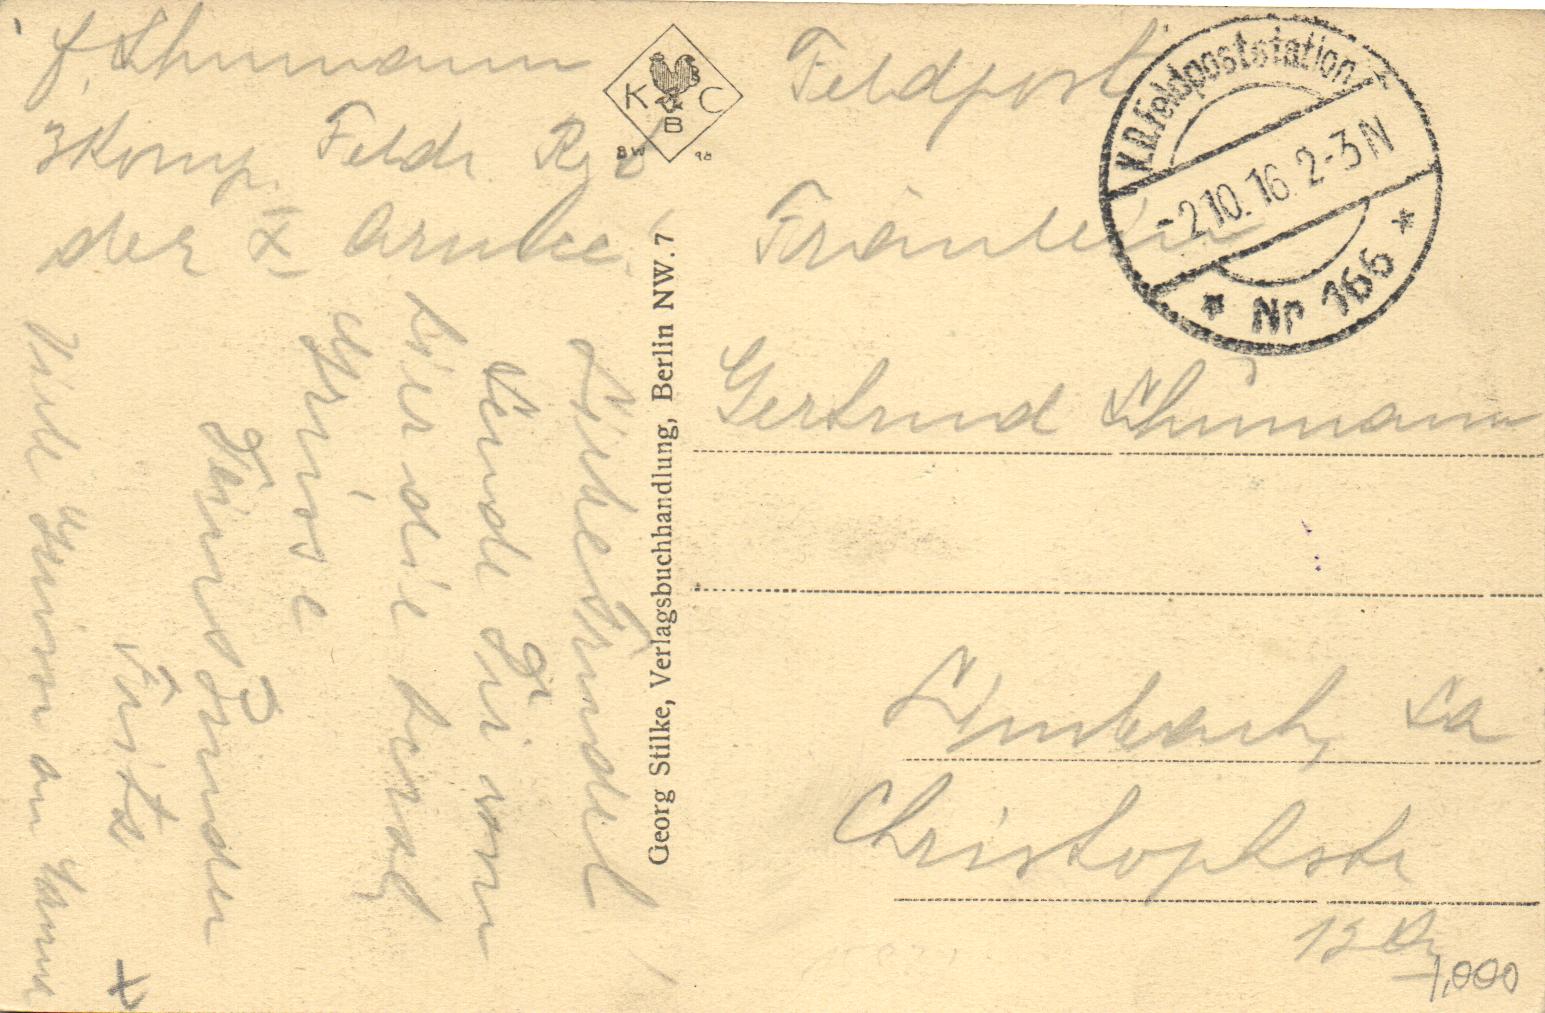 F. Schumann
3 Komp. Feldr. Rg
der X Armee.
K B C
B
BW 98
Feldpost
Fräulein
Gertrud Schumann
Limbach, Sa
Christophstr
13
1,000
K.D. Feldpoststation
-2.10.16 2-3 N
* Nr 166 *
Georg Stilke, Verlagsbuchhandlung, Berlin NW. 7
Liebe Trudel!
Sende Dir von
hier die besten
Grüsse
Dein Bruder
Fritz
Viele Grüsse an Mama